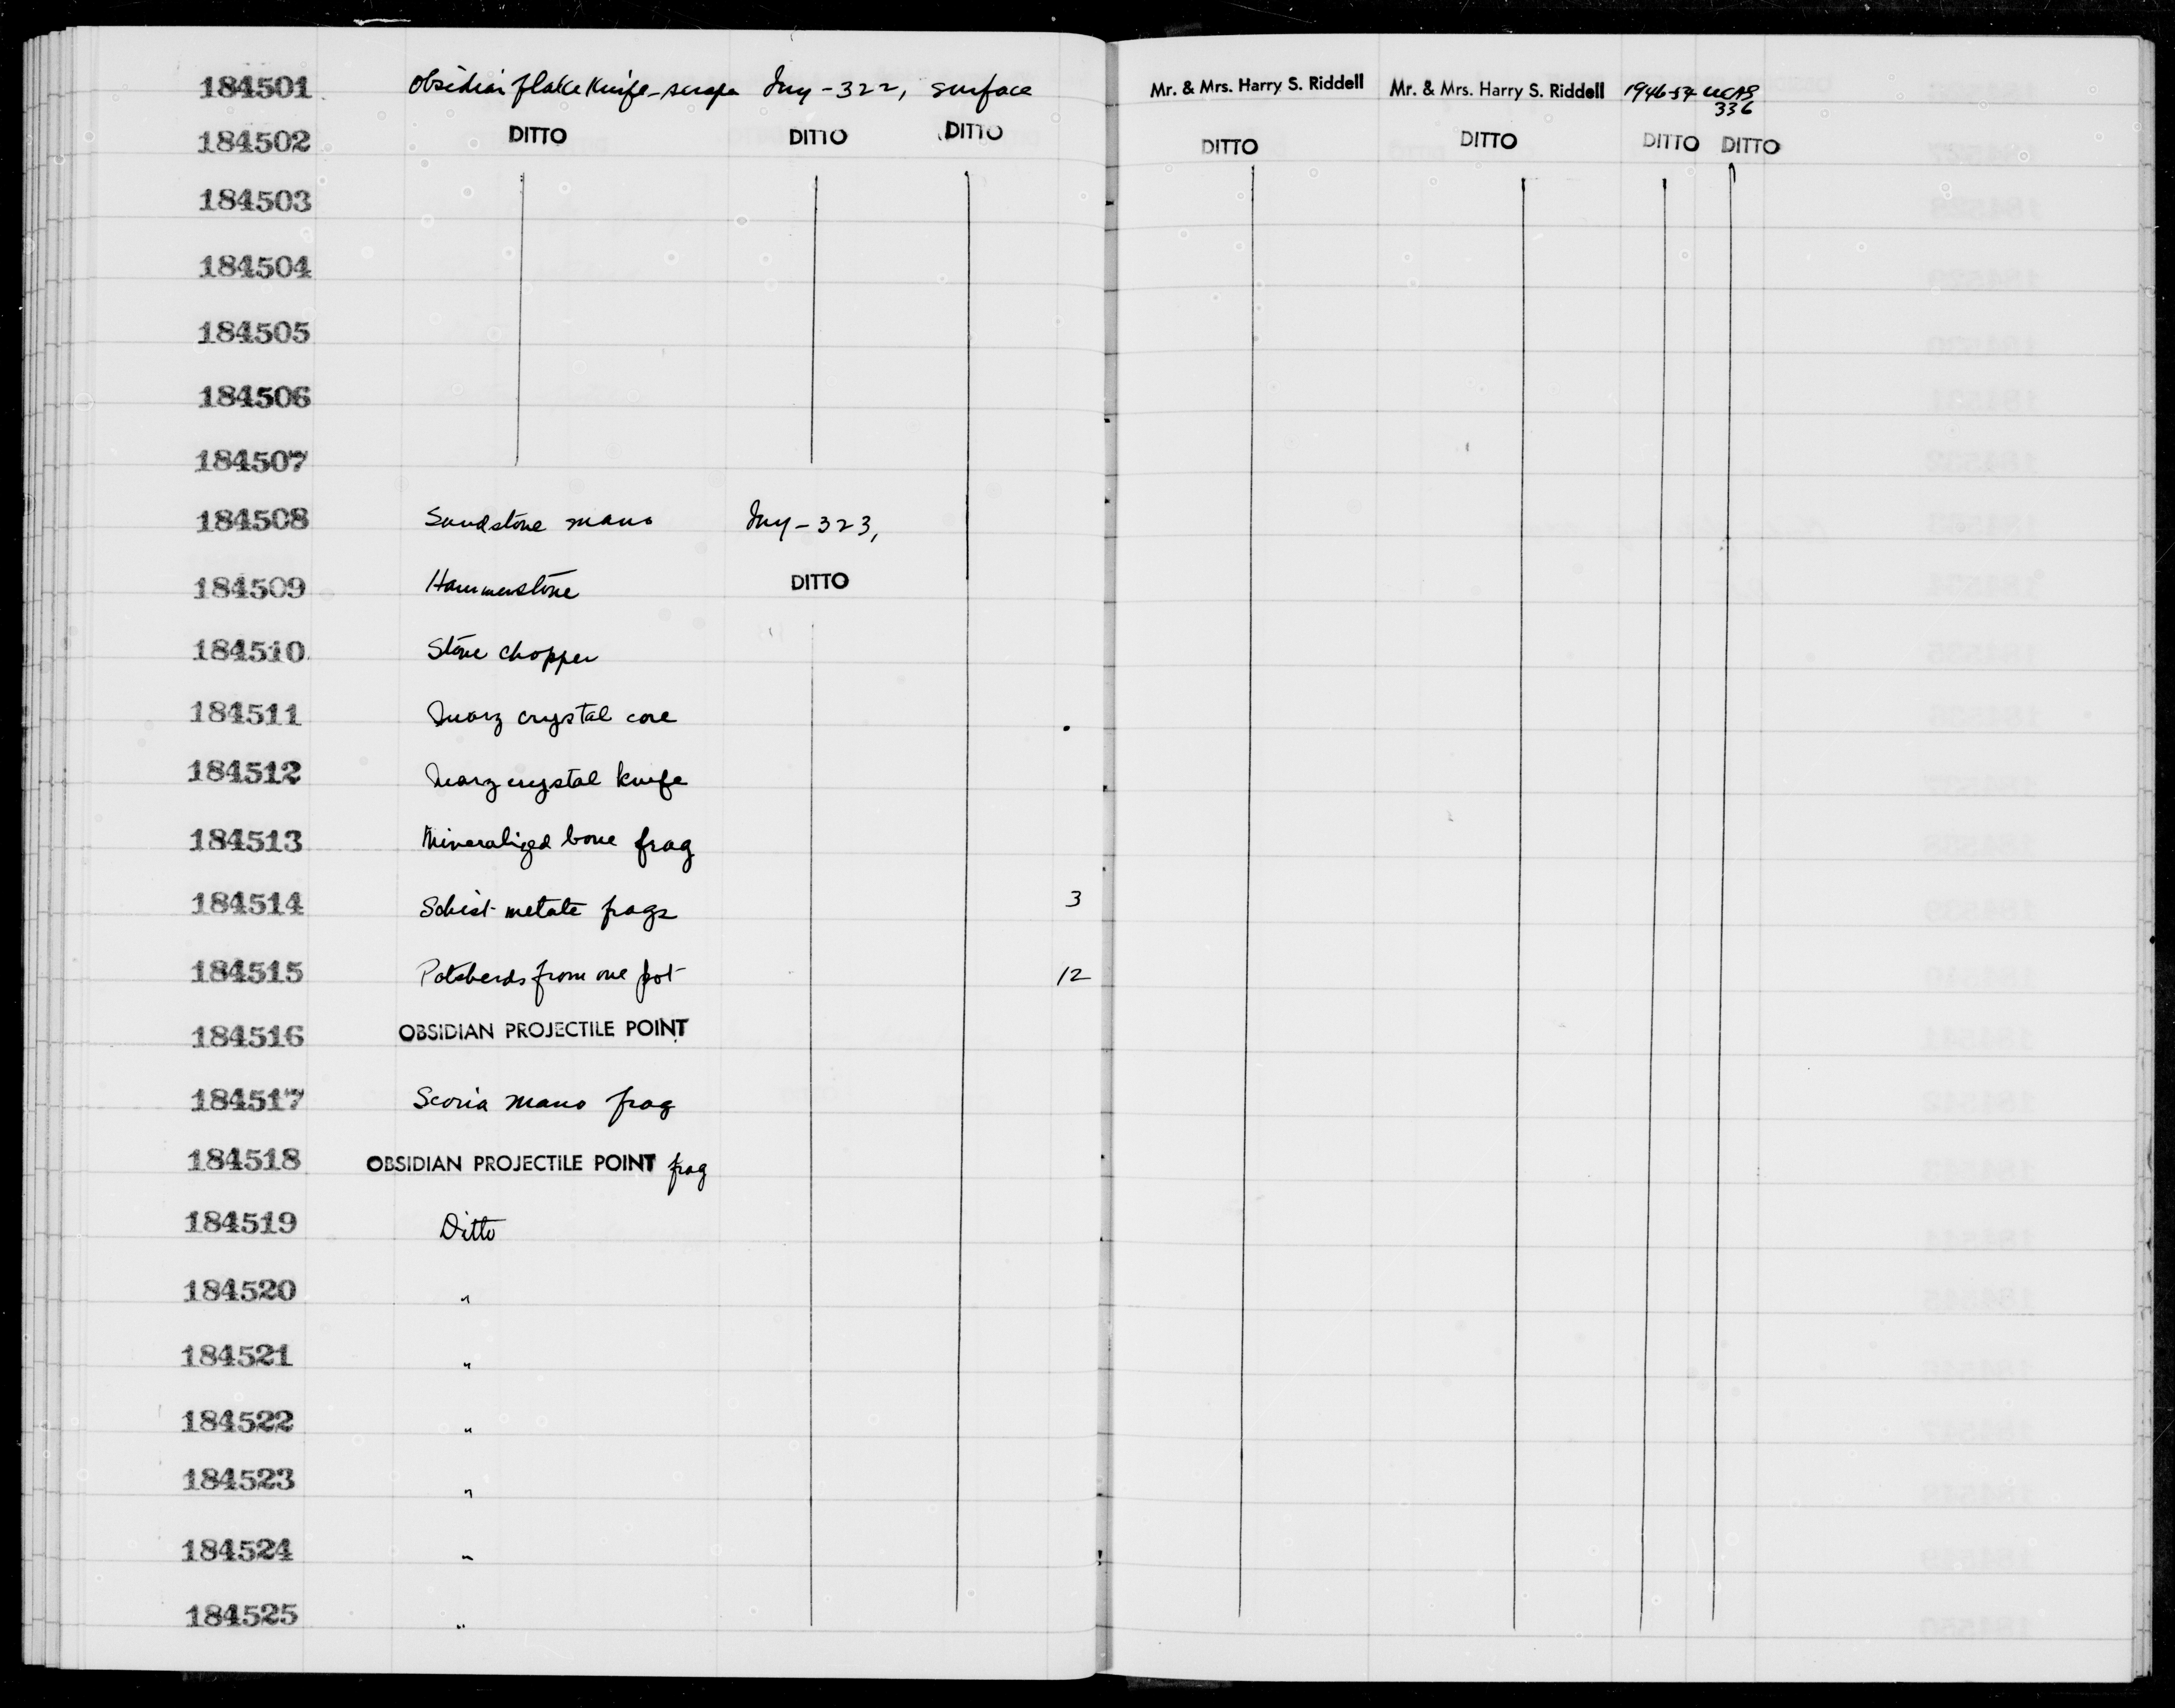 184501 Obsidian flake knife-scraper Iny-322, surface Mr. & Mrs. Harry S. Riddell Mr. & Mrs. Harry S. Riddell 1946-54 UCAS 336
184502 DITTO DITTO DITTO DITTO DITTO DITTO DITTO
184503
184504
184505
184506
184507
184508 Sandstone mano Iny-323,
184509 Hammerstone DITTO
184510 Stone chopper
184511 Quarz crystal core
184512 Quarz crystal knife
184513 Mineralized bone frag
184514 Schist metate frags 3
184515 Potsherds from one pot 12
184516 OBSIDIAN PROJECTILE POINT
184517 Scoria mano frag
184518 OBSIDIAN PROJECTILE POINT frag
184519 Ditto
184520 "
184521 "
184522 "
184523 "
184524 "
184525 "